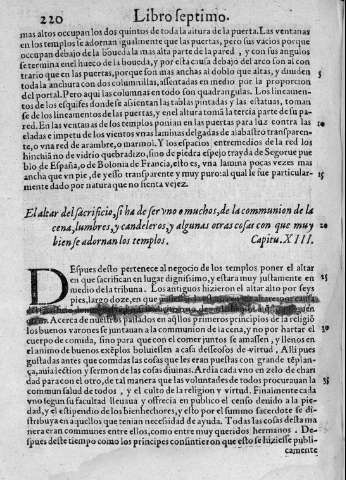 220 Libro septimo.
mas altos occupan los dos quintos de toda la altura de la puerta. Las ventanas
en los templos le adornan igualmente que las puertas, pero sus vacios porque
occupan debajo de la boueda la mas alta parte de la pared, y con sus angulos
se termina en el hueco de la boueda, y por esta causa debajo del arco son al con
trario que en las puertas, porque son mas anchas al doblo que altas, y diuiden 5
toda la anchura con dos columnillas, assentadas en medio por la proporcion
del portal. Pero aqui las colunas en todo son quadrangulas. Los lineamen-
tos de los esquifes donde se assientan las tablas pintadas y las estatuas, toman
se de los lineamentos de las puertas, y en el altura tomã la tercia parte de su pa-
red. En las ventanas de los templos ponian en las puertas para luz contra las
eladas e impetu de los vientos vnas laminas delgadas de alabastro transparen-
te, o vna red de arambre, o marmol. Y los espacios entremedios de la red los
hinchiã no de vidrio quebradizo, sino de piedra espejo trayda de Segorue pue
blo de España, o de Bolonia de Francia, esto es, vna lamina pocas vezes mas
ancha que vn pie, de yesso transparente y muy puro: al qual le fue particular 15
mente dado por natura que no sienta vejez.
El altar del sacrificio, si ha de ser vno o muchos, de la communion de la
cena, lumbres, y candeleros, y algunas otras cosas con que muy 20
bien se adornan los templos. Capitu. XIII.
DEspues desto pertenece al negocio de los templos poner el altar
en que sacrifican en lugar dignissimo, y estara muy justamente en
medio de la tribuna. Los antiguos hizieron el altar alto por seys
pies, largo doze, en que
Acerca de nuestros passados en aq̃llos primeros principios de la religiõ
los buenos varones se juntauan a la communion de la cena, y no por hartar el 30
cuerpo de comida, sino para que con el comer juntos se amassen, y llenos en
el animo de buenos exẽplos boluiessen a casa desseosos de virtud. Alli pues
gustadas antes que comidas las cosas que les eran puestas con grande tẽplan-
ça, auia lection y sermon de las cosas diuinas. Ardia cada vno en zelo de chari
dad para con el otro, de tal manera que las voluntades de todos procurauan la 35
commun salud de todos, y el culto de la religion y virtud. Finalmente cada
vno segun su facultad lleuaua y offrecia en publico el censo deuido a la pie-
dad, y el estipendio de los bienhechores, y esto por el summo sacerdote se di-
stribuya en aquellos que tenian necesidad de ayuda. Todas las cosas desta ma
nera eran communes entre ellos, como entre muy queridos hermanos. De-
spues deste tiempo como los principes consintieron que esto se hiziesse publi-
camente